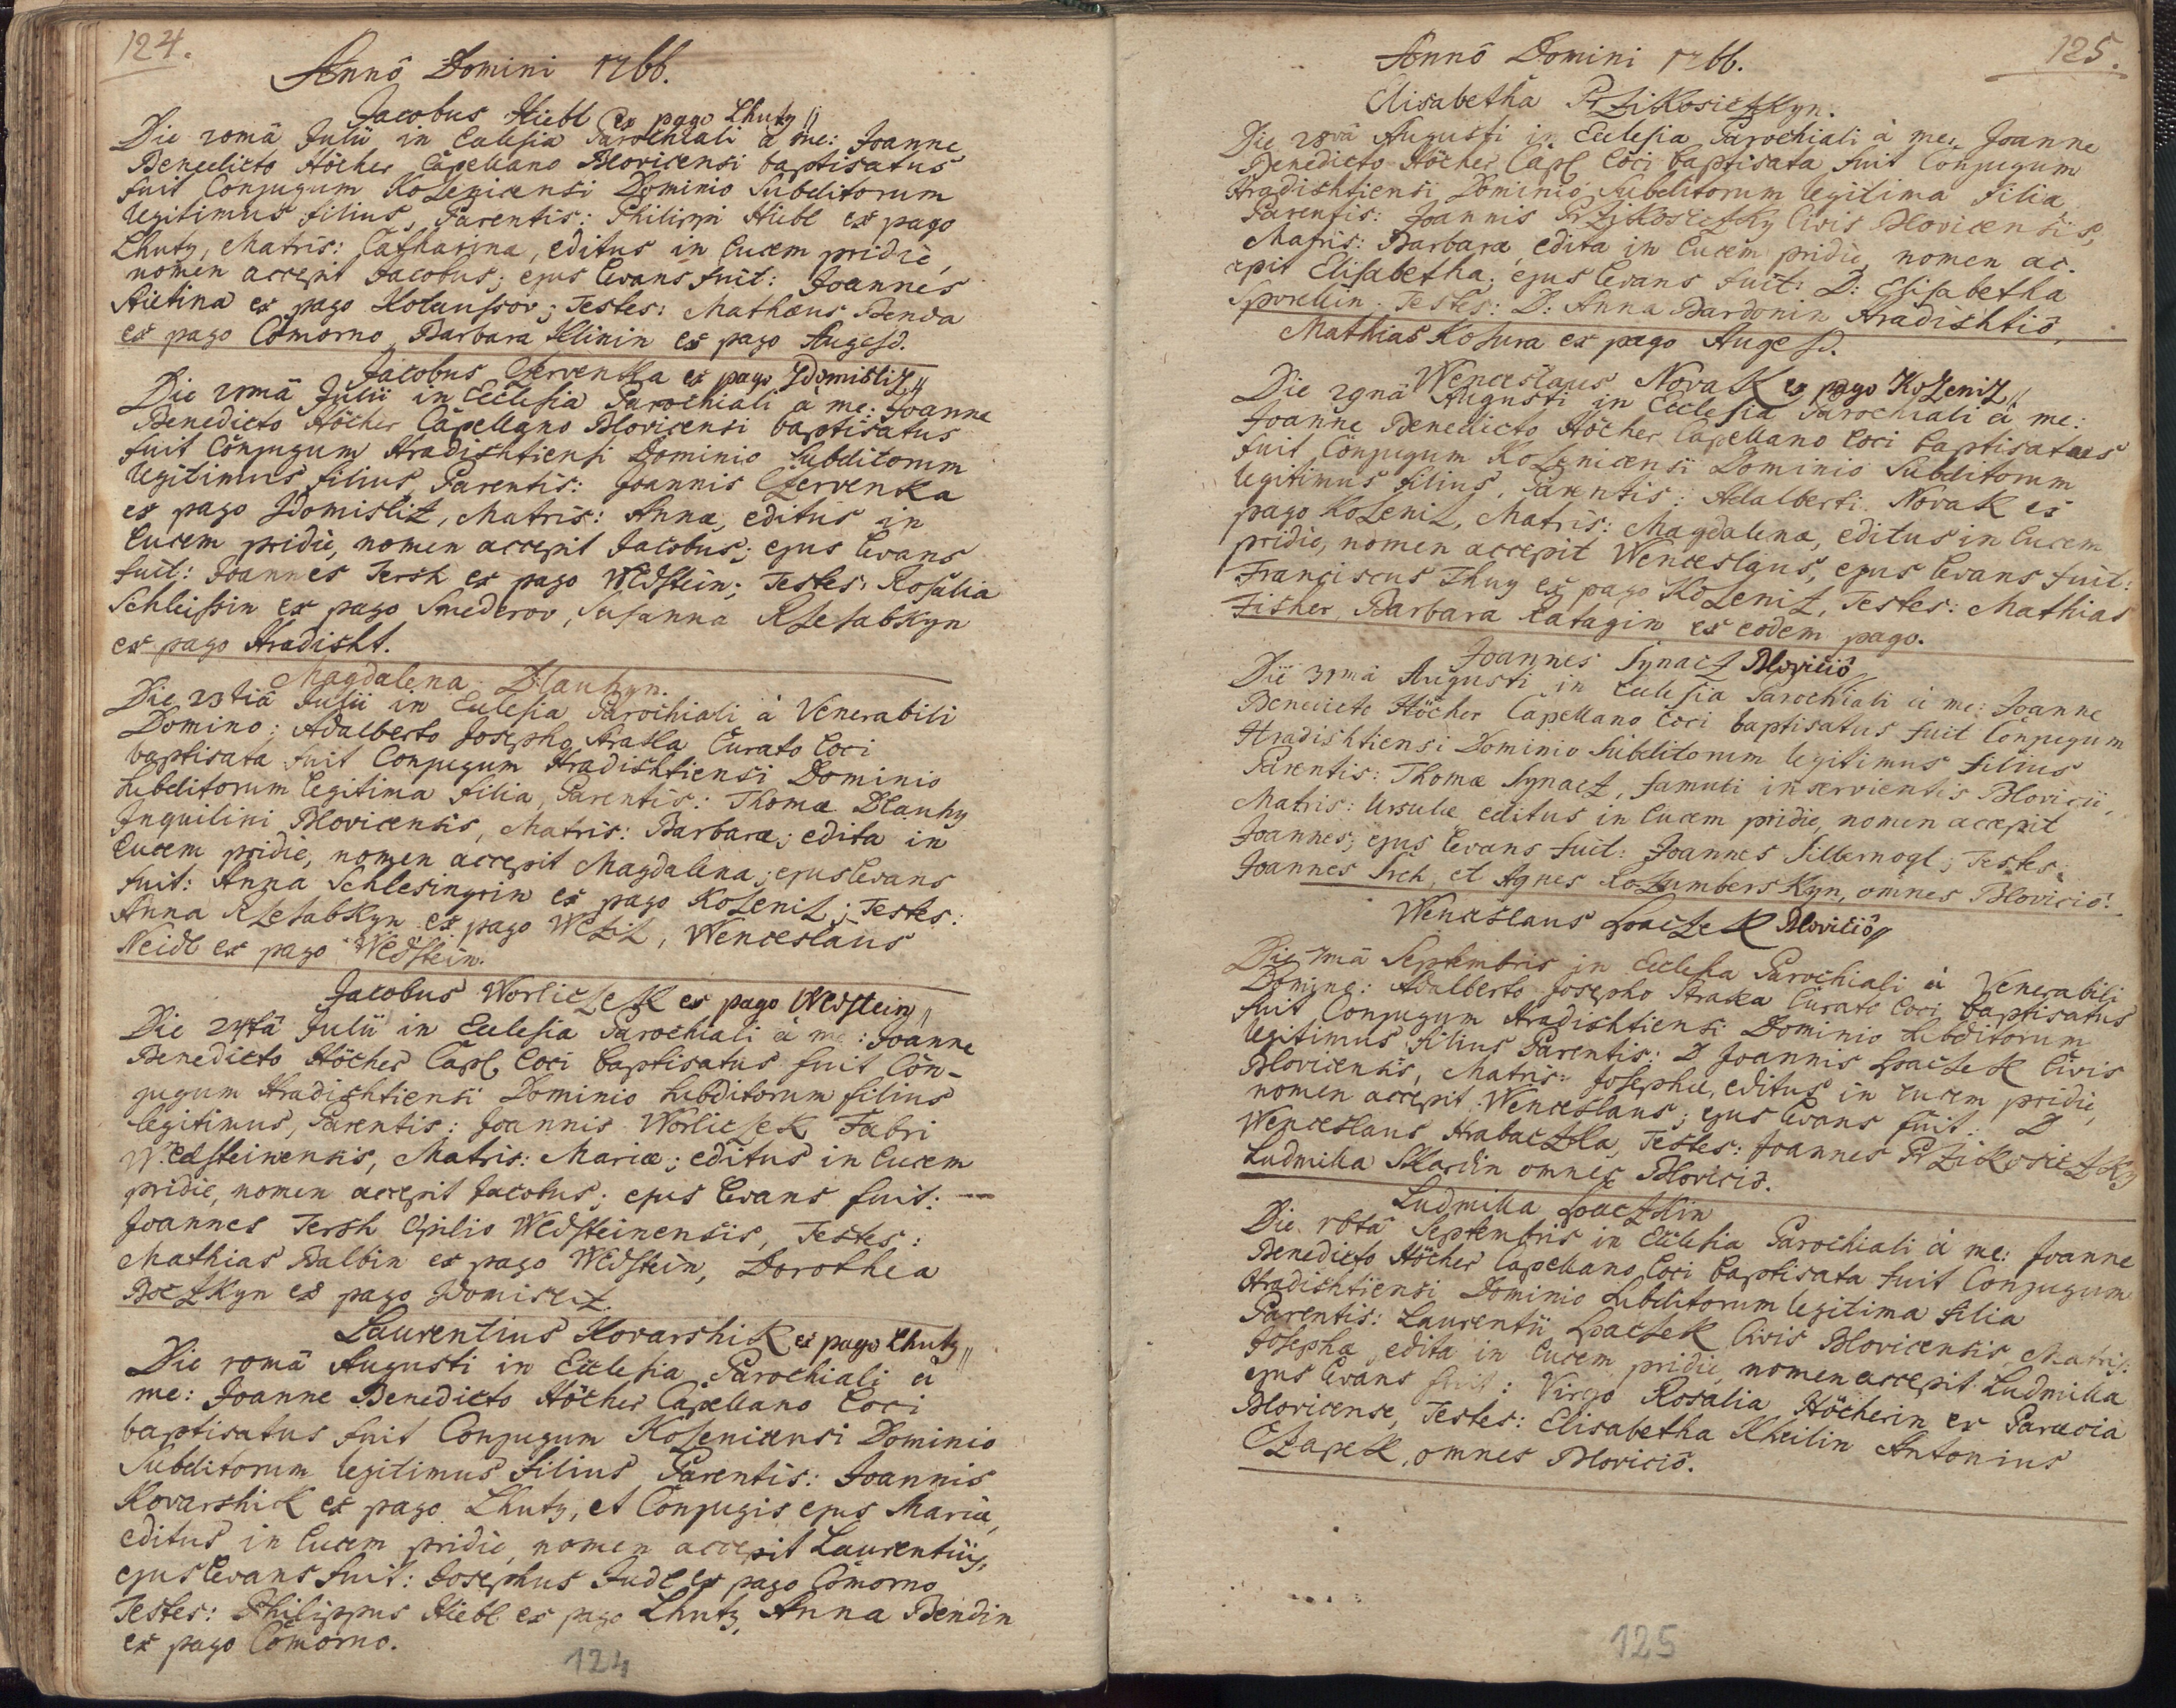 124.
Annô Domini 1766.
Jacobus Hiebl ex pago Lhuty
Die 20mâ Julii in Ecclesia Parochiali à me: Joanne
Benedicto Höcher Capellano Blovicensi baptisatus
fuit Conjugum Koʃenicensi Dominio Subditorum
legitimus filius, Parentis: Philippi Hiebl ex pago
Lhuty, Matris: Catharina, editus in lucem pridie,
nomen accepit Jacobus; ejus levans fuit: Joannes
ex pago Kotaussov; Testes: Mathæus Benda
ex pago Comorno, Barbara Klinin ex pago Augesd.
Jacobus Czervenka ex pago Zdomisliz
Die 21mâ Julii in Ecclesia Parochiali à me: Joanne
Benedicto Höcher Capellano Blovicensi baptisatus
fuit Conjugum Hradishtiensi Dominio Subditorum
legitimus filius, Parentis: Joannis Czervenka
ex pago Zdomisliz, Matris: Annæ, editus in
lucem pridie, nomen accepit Jacobus; ejus levans
fuit: Joannes Tersh ex pago Wildstein; Testes: Rosalia
Schleissin ex pago Smederov, Susanna Rzezabkyn
ex pago Hradisht.
Magdalena Dlauhyn.
Die 23tiâ Julii in Ecclesia Parochiali à Venerabili
Domino: Adalberto Josepho Straka Curato loci
baptisata fuit Conjugum Hradishtiensi Dominio
subditorum legitima filia, Parentis: Thomæ Dlauhy
Inquilini Blovicensis, Matris: Barbaræ; edita in
lucem pridie, nomen accepit Magdalena; ejus levans
fuit: Anna Schlesingrin ex pago Kozeniz; Testes:
Anna Rzezabkyn ex pago Wzyz, Wenceslaus
Neidl ex pago Wedstein.
Jacobus Worliczek ex pago Wedstein
Die 24tâ Julii in Ecclesia Parochiali à me: Joanne
Benedicto Höcher Capl. loci baptisatus fuit Con-
jugum Hradishtiensi Dominio subditorum filius
legitimus, Parentis: Joannis Worliczek Fabri
Wedsteinensis, Matris: Mariæ; editus in lucem
pridie, nomen accepit Jacobus; ejus levans fuit: —
Joannes Tersh Opilio Wedsteinensis, Testes:
Mathias Balbin ex pago Wedstein, Dorothea
Boczkyn ex pago Zdomisliz.
Laurentius Kovarshik ex pago Lhuty
Die 10mâ Augusti in Ecclesia Parochiali à
me: Joanne Benedicto Höcher Capellano loci
baptisatus fuit Conjugum Kozenicensi Dominio
Subditorum legitimus filius Parentis: Joannis
Kovarshik ex pago Lhuty, et Conjugis ejus Mariæ,
editus in lucem pridie, nomen accepit Laurentius,
ejus levans fuit: Josephus Judl ex pago Comorno
Testes: Philippus Hiebl ex pago Lhuty, Anna Bendin
ex pago Comorno.
124
125.
Annô Domini 1766.
Elisabetha Przikosiczkyn.
Die 28vâ Augusti in Ecclesia Parochiali à me: Joanne
Benedicto Höcher Capl. loci baptisata fuit Conjugum
Hradishtiensi Dominio Subditorum legitima filia
Parentis: Joannis Przikosiczky Civis Blovicensis,
Matris: Barbaræ, edita in lucem pridie, nomen ac-
cepit Elisabetha; ejus levans fuit: D: Elisabetha
Sporellin. Testes: D: Anna Bardonin Hradishtiô,
Mathias Kosura ex pago Augesd.
Wenceslaus Novak ex pago Kozeniz
Die 29nâ Augusti in Ecclesia Parochiali à me:
Joanne Benedicto Höcher Capellano loci baptisatus
fuit Conjugum Kozenicensi Dominio Subditorum
legitimus filius, Parentis: Adalberti Novak ex
pago Kozeniz, Matris: Magdalena, editus in lucem
pridie, nomen accepit Wenceslaus, ejus levans fuit:
Franciscus Zhuy ex pago Kozeniz, Testes: Mathias
Fisher, Barbara Ratagin ex eodem pago.
Joannes Synacz Bloviciô
Die 31mâ Augusti in Ecclesia Parochiali à me: Joanne
Benedicto Höcher Capellano loci baptisatus fuit Conjugum
Hradishtiensi Dominio Subditorum legitimus filius
Parentis: Thomæ Synacz, famuli inservientis Blovicii,
Matris: Ursulæ editus in lucem pridie, nomen accepit
Joannes; ejus levans fuit: Joannes Silbernogl; Testes:
Joannes Srch, et Agnes Rozumberskyn, omnes Bloviciô.
Wenceslaus Haczek Bloviciô
Die 7mâ Septembris in Ecclesia Parochiali à Venerabili
Domino: Adalberto Josepho Straka Curato loci baptisatus
fuit Conjugum Hradishtiensi Dominio subditorum
legitimus filius Parentis: D Joannis Haczek Civis
Blovicensis, Matris: Josephæ, editus in lucem pridie,
nomen accepit Wenceslaus; ejus levans fuit: D
Wenceslaus Hrabaczka, Testes: Joannes Przikosiczky
Ludmilla Sklardin omnes Bloviciô.
Ludmilla Haczkin
Die 16tâ Septembris in Ecclesia Parochiali à me: Joanne
Benedicto Höcher Capellano loci baptisata fuit Conjugum
Hradishtiensi Dominio subditorum legitima filia
Parentis: Laurentii Haczek Civis Blovicensis, Matris:
Josepha, edita in lucem pridie, nomen accepit Ludmilla
ejus levans fuit: Virgo Rosalia Höcherin ex Paraecia
Blovicense, Testes: Elisabetha Kheilin Antonius
Czapek, omnes Bloviciô.
125